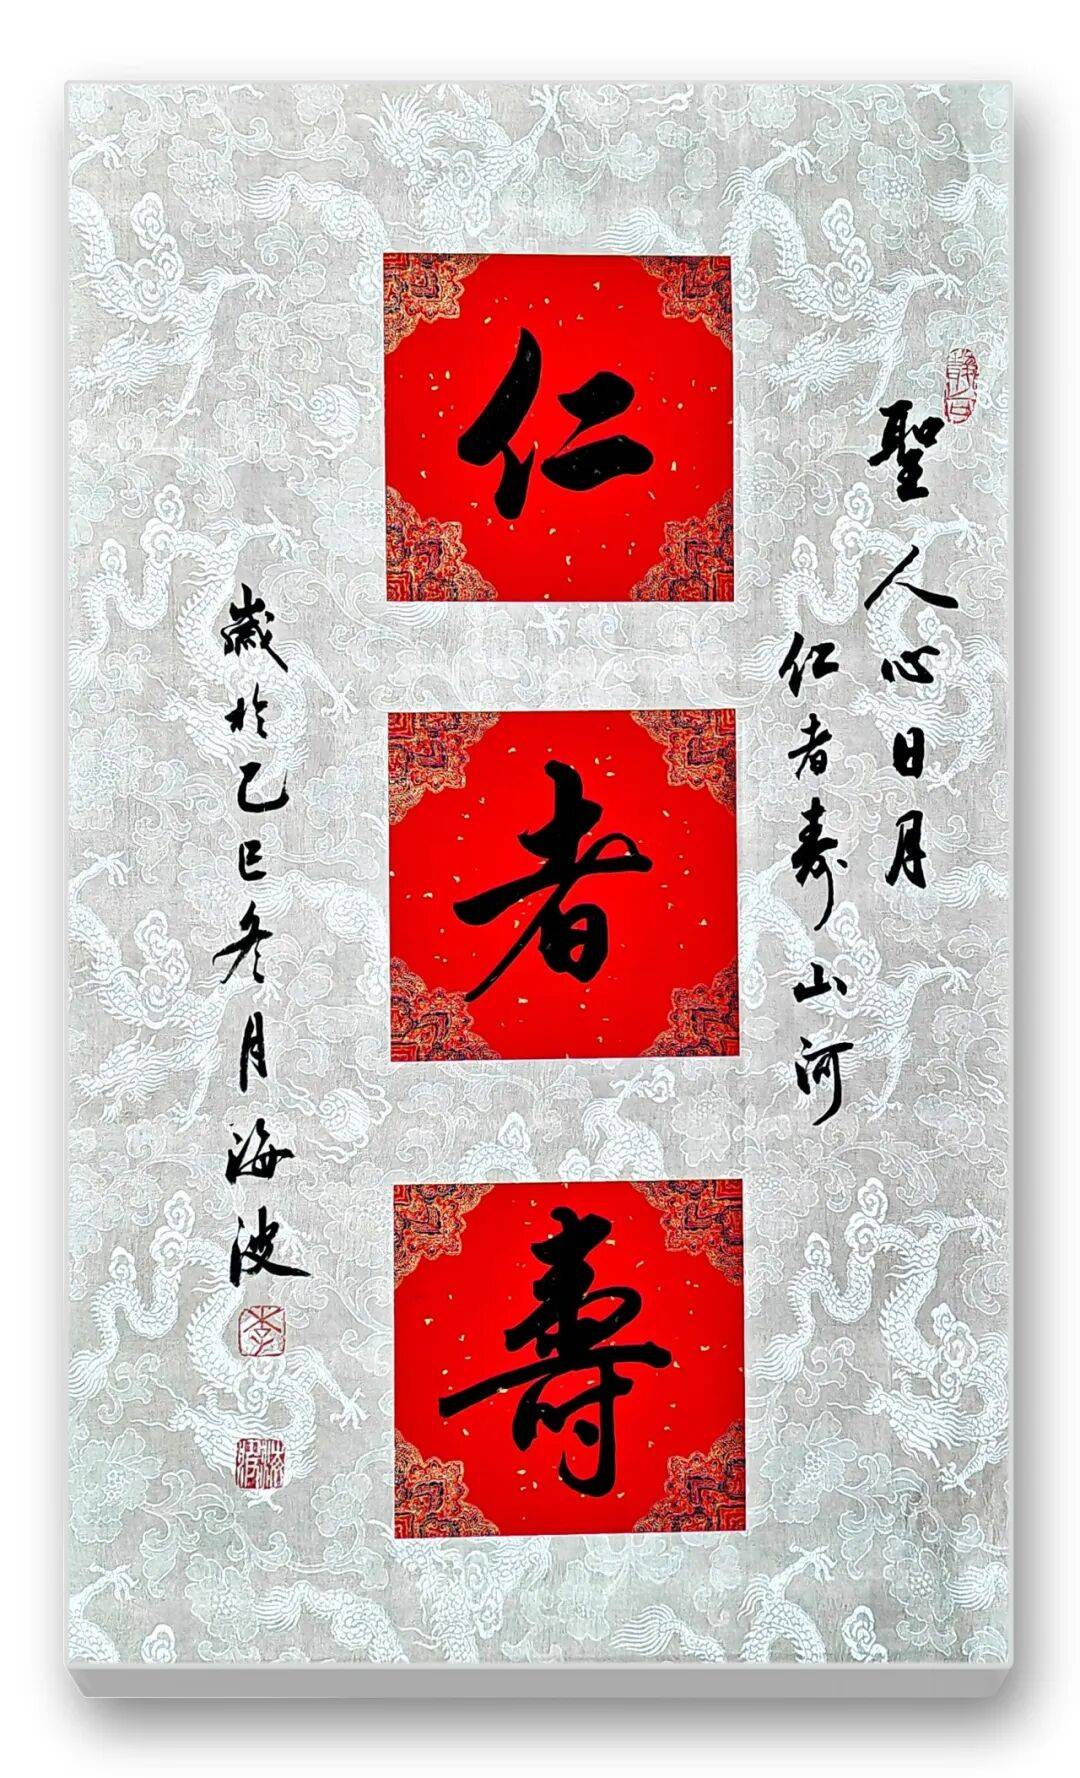 聖人心日月
仁者寿山河
仁
者
壽
歲於乙巳冬月海波
李